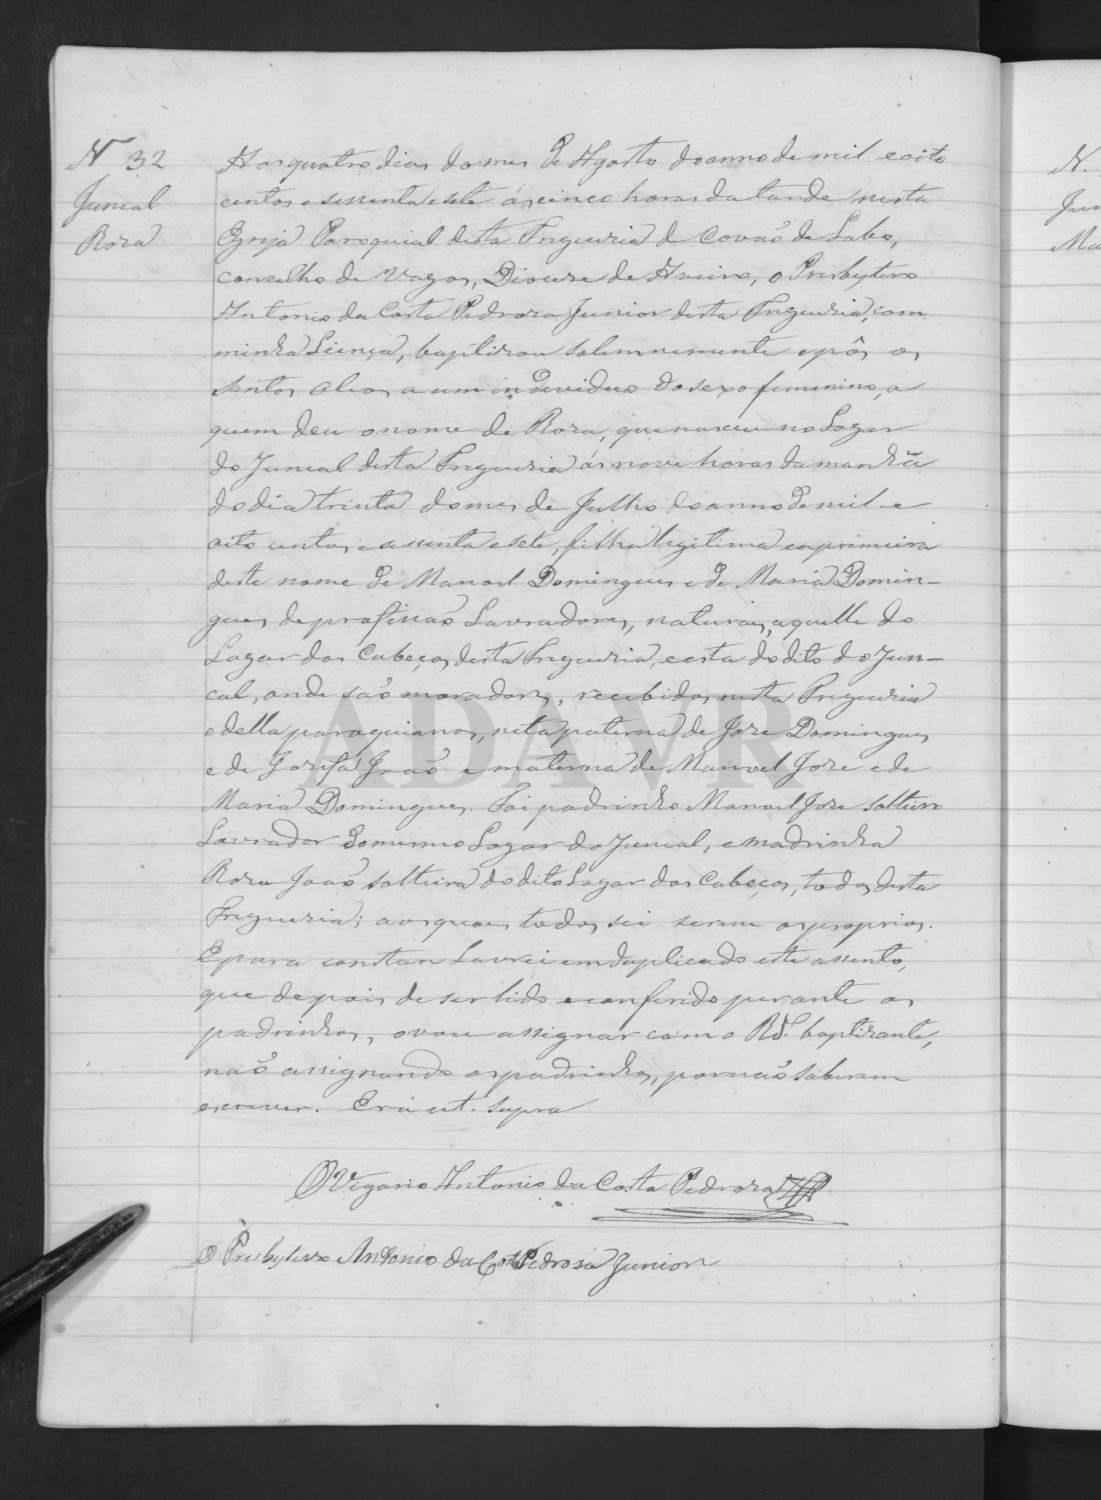 N 32
Juncal
Roza
Aos quatro dias do mes de Agosto do anno de mil e oito
centos e sessenta e sete ás cinco horas da tarde nesta
Egreja Paroquial desta Freguezia de Covaõ do Lobo,
concelho de Vagos, Diocese de Aveiro, o Presbytero
Antonio da Costa Pedroza Junior desta Freguezia, com
minha Licença, baptizou solemnemente e pôs os
santos oleos a um individuo do sexo femenino, a
quem deu o nome de Roza, que nasceu no Logar
do Juncal desta Freguezia ás nove horas da manhã
do dia trinta do mes de Julho do anno de mil e
oito centos e sessenta e sete, filha legitima e a primeira
deste nome de Manoel Domingues e de Maria Domin-
gues de profissaõ Lavradores, naturaes, aquelle do
Lugar dos Cabeços desta Freguezia, e esta do dito do Jun-
cal, onde saõ moradores, recebidos nesta Freguezia
e della paroquianos, neta paterna de Joze Domingues
e de Jozefa Joaõ e materna de Manoel Joze e de
Maria Domingues. Foi padrinho Manoel Joze solteiro
Lavrador do mesmo Logar do Juncal, e madrinha
Roza Joaõ solteira do dito Lugar dos Cabeços, todos desta
Freguezia; aos quaes todos sei serem os proprios.
E para constar Lavrei em duplicado este assento,
que depois de ser lido e conferido perante os
padrinhos, o vou assignar com o Rd.º baptizante,
naõ assignando os padrinhos, por naõ saberem
escrever. Era ut. supra
O Vigario Antonio da Costa Pedroza
O Presbytero Antonio da Costa Pedrosa Junior
N.
Jun
Ma
ADAVR